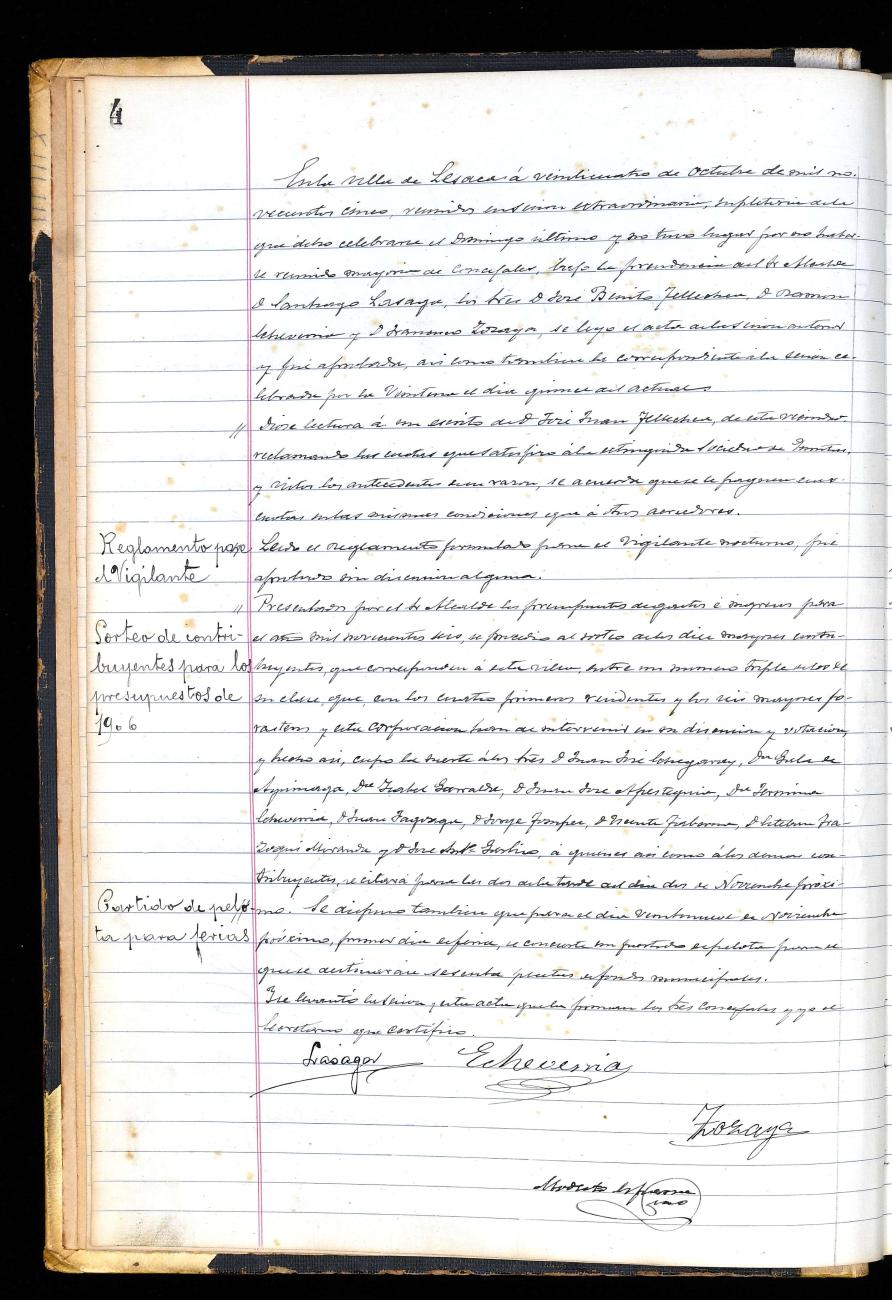 4
En la villa de Lesaca á veinticuatro de Octubre de mil no-
vecientos cinco, reunidos en sesion extraordinaria, supletoria de la
que debio celebrarse el Domingo último y no tuvo lugar por no haber-
se reunido mayoria de Concejales, bajo la presidencia del Sr Alcalde
D Santiago Lasaga, los Sres D José Benito Tellechea, D Ramon
Echeverria y D Francisco Zozaya, se leyo el acta de la sesion anterior
y fué aprobada, asi como tambien la correspondiente á la sesion ce-
lebrada por la Veintena el dia quince del actual.
// Diose lectura á un escrito de D José Juan Tellechea, de esta vecindad,
reclamando las cuotas que satisfizo á la extinguida Sociedad de
y vistos los antecedentes de su razon, se acuerda que se le paguen esas
cuotas en las mismas condiciones que á otros acreedores.
Reglamento para
el Vigilante
Leido el reglamento formulado para el Vigilante nocturno, fué
aprobado sin discusion alguna.
// Presentados por el Sr Alcalde los presupuestos de gastos é ingresos para
Sorteo de contri-
buyentes para los
presupuestos de
1906
el año mil novecientos seis, se procedio al sorteo de los diez mayores contri-
buyentes, que corresponden á esta villa, entre un numero triple de los de
su clase, que, con los cuatro primeros residentes y los seis mayores fo-
rasteros y esta Corporacion han de intervenir en su discusion y votacion,
y hecho asi, cupo la suerte á los Sres D Juan José Echegaray, Dña de
Dña Isabel Garralda, D Juan José Apesteguia, Dña Geronima
Echeverria, D Juan D Jorge D Vicente D Esteban Ira-
zoqui Miranda y D José Antº á quienes asi como á los demas con-
tribuyentes, se citará para las dos de la tarde del dia dos de Noviembre próxi-
Partido de pelo-
ta para ferias
mo. // Se dispuso tambien que para el dia veintinueve de Noviembre
próximo, primer dia de feria, se concierte un partido de pelota para el
que se destinarán sesenta pesetas de fondos municipales.
Y se levantó la sesion y esta acta que la firman los Sres Concejales y yo el
Secretario que certifico.
Lasaga
Echeverria
Zozaya
Modesto